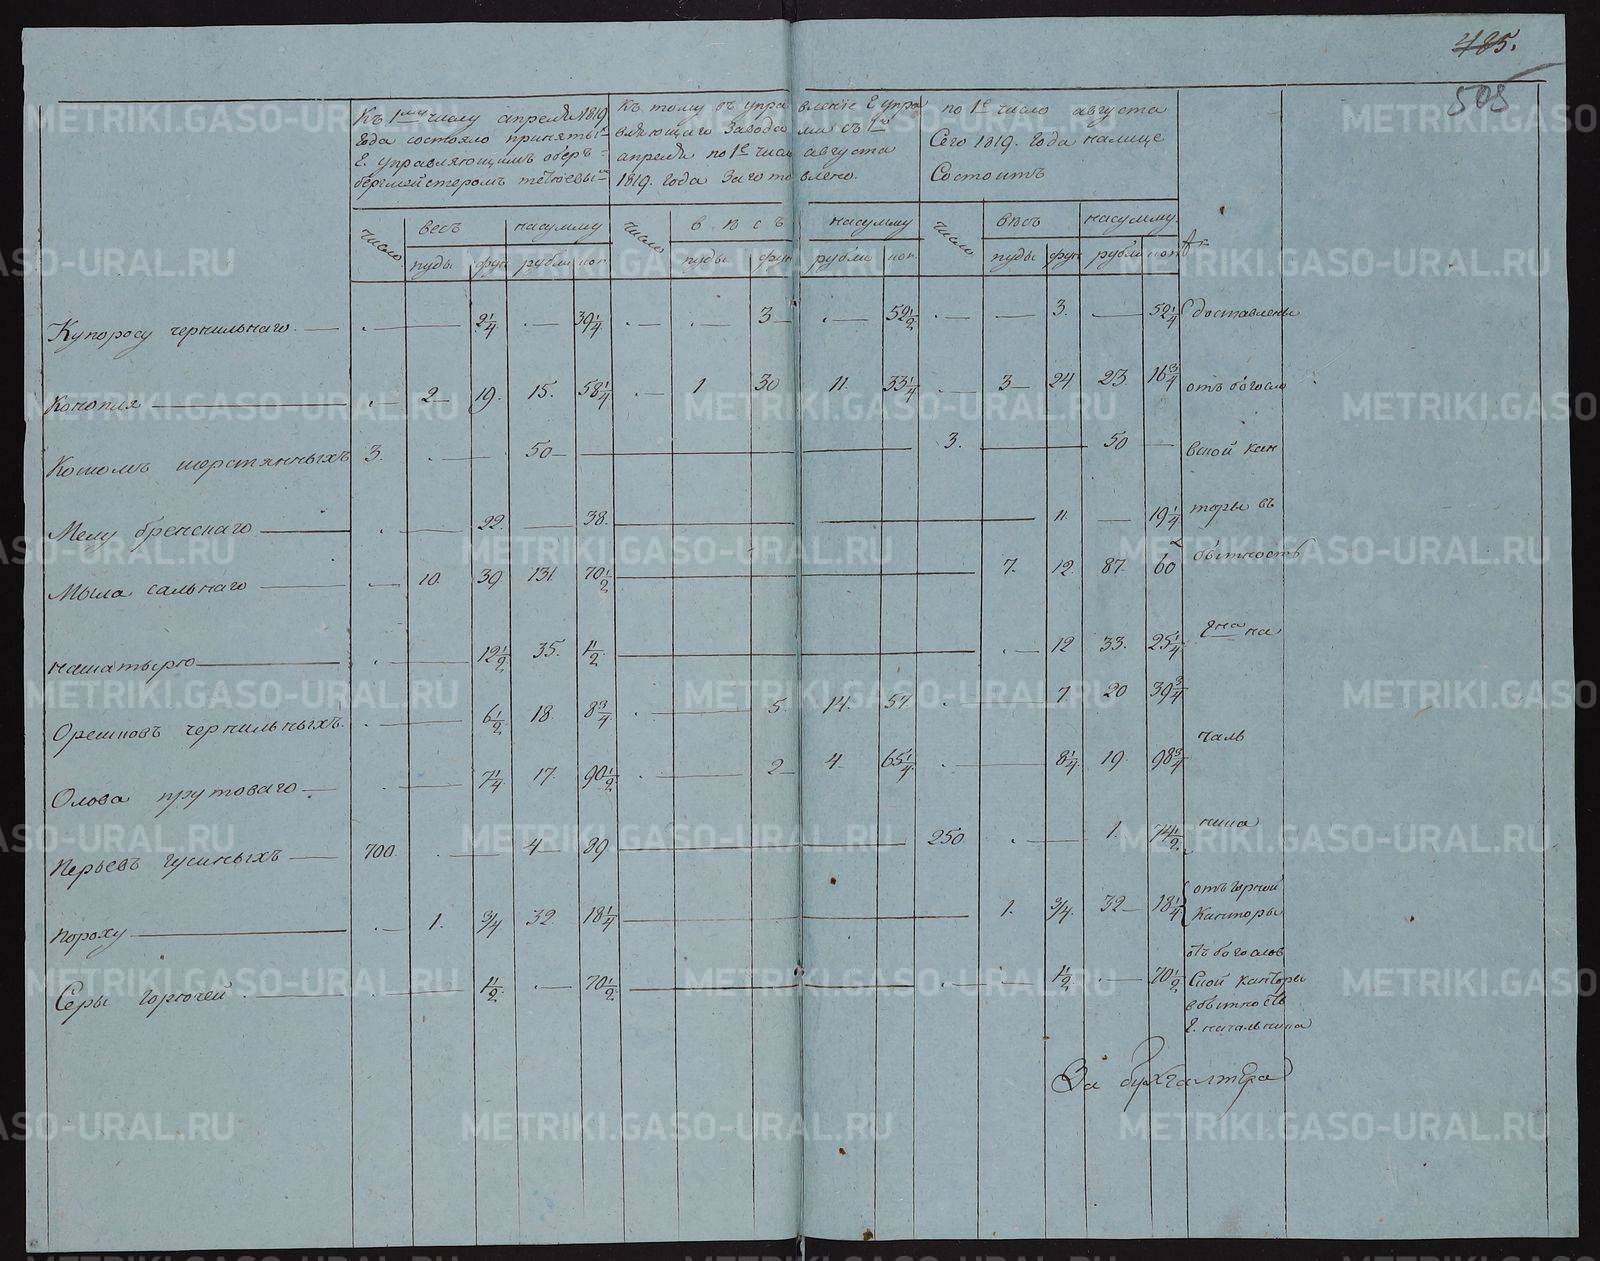 485.
505
Къ 1му числу апреля 1819
года состояло принятыхъ
Г. управляющимъ оберъ-
бергмейстеромъ
Къ тому въ управленіе Г. упра
вляющаго завода ми съ 1го
апреля по 1е число августа
1819. года заготовлено.
по 1е число августа
Сего 1819. года налице
Состоитъ
число весъ насумму число вѣсъ насумму число вѣсъ насумму
пуды фун рубли коп пуды фун рубли коп пуды фун рубли коп
Купоросу чернильнаго 2 1/4 39 1/4 3 52 1/2 3. 52 1/4 доставлены
Конопля 2 19. 15. 58 1/4 1 30 11. 33 1/4 3 24 23 16 3/4 отъ богосло
Кошомъ шерстянныхъ 3. 50 3. 50 вской кан
Мелу бренскаго 22. 38. 11. 19 1/4 торы въ
Мыла сальнаго 10. 39 131 70 1/2 7. 12 87 60 бытность
нашатырю 12 1/2 35. 1/2 12 33. 25 1/4 на
Орешковъ чернильныхъ 6 1/2 18 8 3/4 5. 14. 57. 7 20 39 3/4
Олова прутоваго 7 1/4 17. 90 1/2 2 4 65 1/4 8 1/4 19. 98 3/4 чаль
Перьевъ гусиныхъ 700. 4 89 250 1. 74 1/2 ника
Пороху 1. 3/4 32 18 1/4 1. 3/4. 32 18 1/4 отъ горной
Канторы
Серы горючей 1/2 70 1/2 1/2 70 1/2 отъ богослов
Ской канторы
в бытность
Г. начальника
За бухгалтера
METRIKI.GASO-URAL.RU